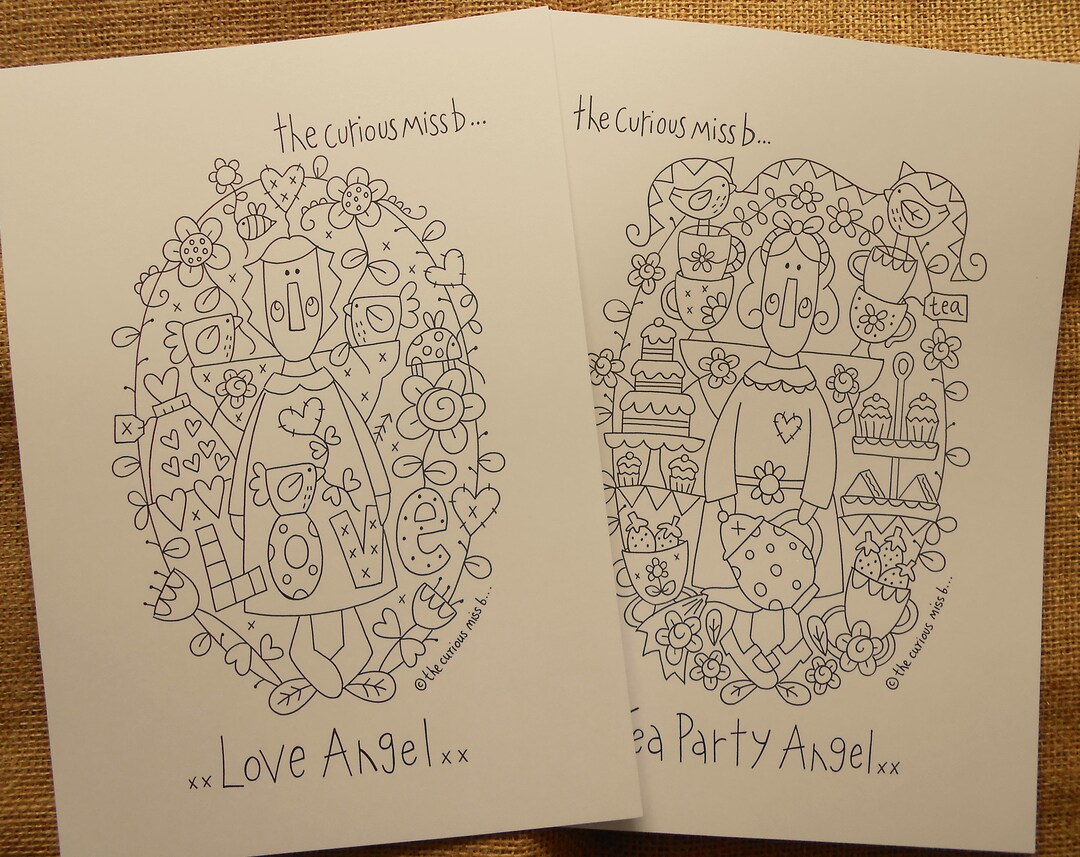 the curious miss b...
x
Love
© the curious miss b....
xx Love Angel xx
the curious miss b...
tea
© the curious miss b....
ea Party Angel xx